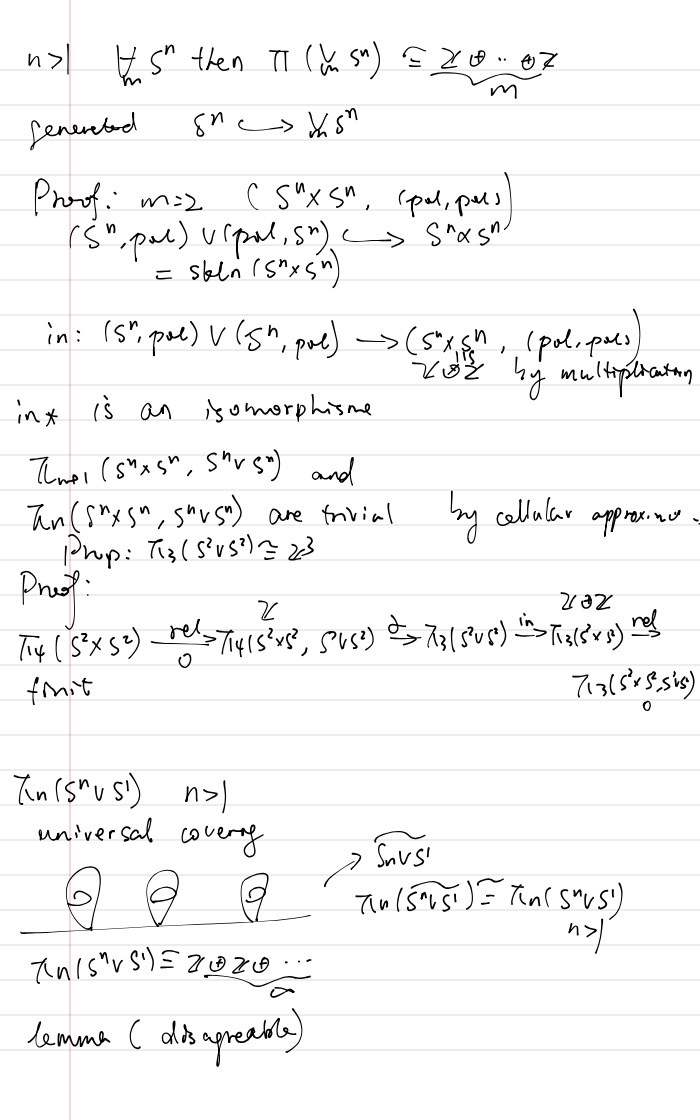 n>1 ⋁_m Sⁿ then π (⋁_m Sⁿ) ≅ ℤ ⊕ ·· ⊕ ℤ
m
generated Sⁿ ↪ ⋁_m Sⁿ
Proof: m=2 (Sⁿ×Sⁿ, (pol, pol)
(Sⁿ, pol) ∨ (pol, Sⁿ) ↪ Sⁿ×Sⁿ
= skln (Sⁿ×Sⁿ)
in: (Sⁿ, pol) ∨ (Sⁿ, pol) → (Sⁿ×Sⁿ, (pol, pol)
ℤ⊕ℤ by multiplication
in* is an isomorphisme
πn+1 (Sⁿ×Sⁿ, Sⁿ∨Sⁿ) and
πn (Sⁿ×Sⁿ, Sⁿ∨Sⁿ) are trivial by cellular approx.
Prop: π3 (S²∨S²) ≅ ℤ³
Proof:
ℤ ℤ⊕ℤ
π4 (S²×S²) rel→ 0 π4(S²×S², S²∨S²) ∂→ π3(S²∨S²) in→ π3(S²×S²) rel→
finit π3(S²×S², S²∨S²)
0
πn(Sⁿ∨S¹) n>1
universal covering
Sn∨S¹
πn(Sⁿ∨S¹) ≅ πn(Sⁿ∨S¹)
n>1
πn(Sⁿ∨S¹) ≅ ℤ⊕ℤ⊕ ···
∞
lemma (disagreable)